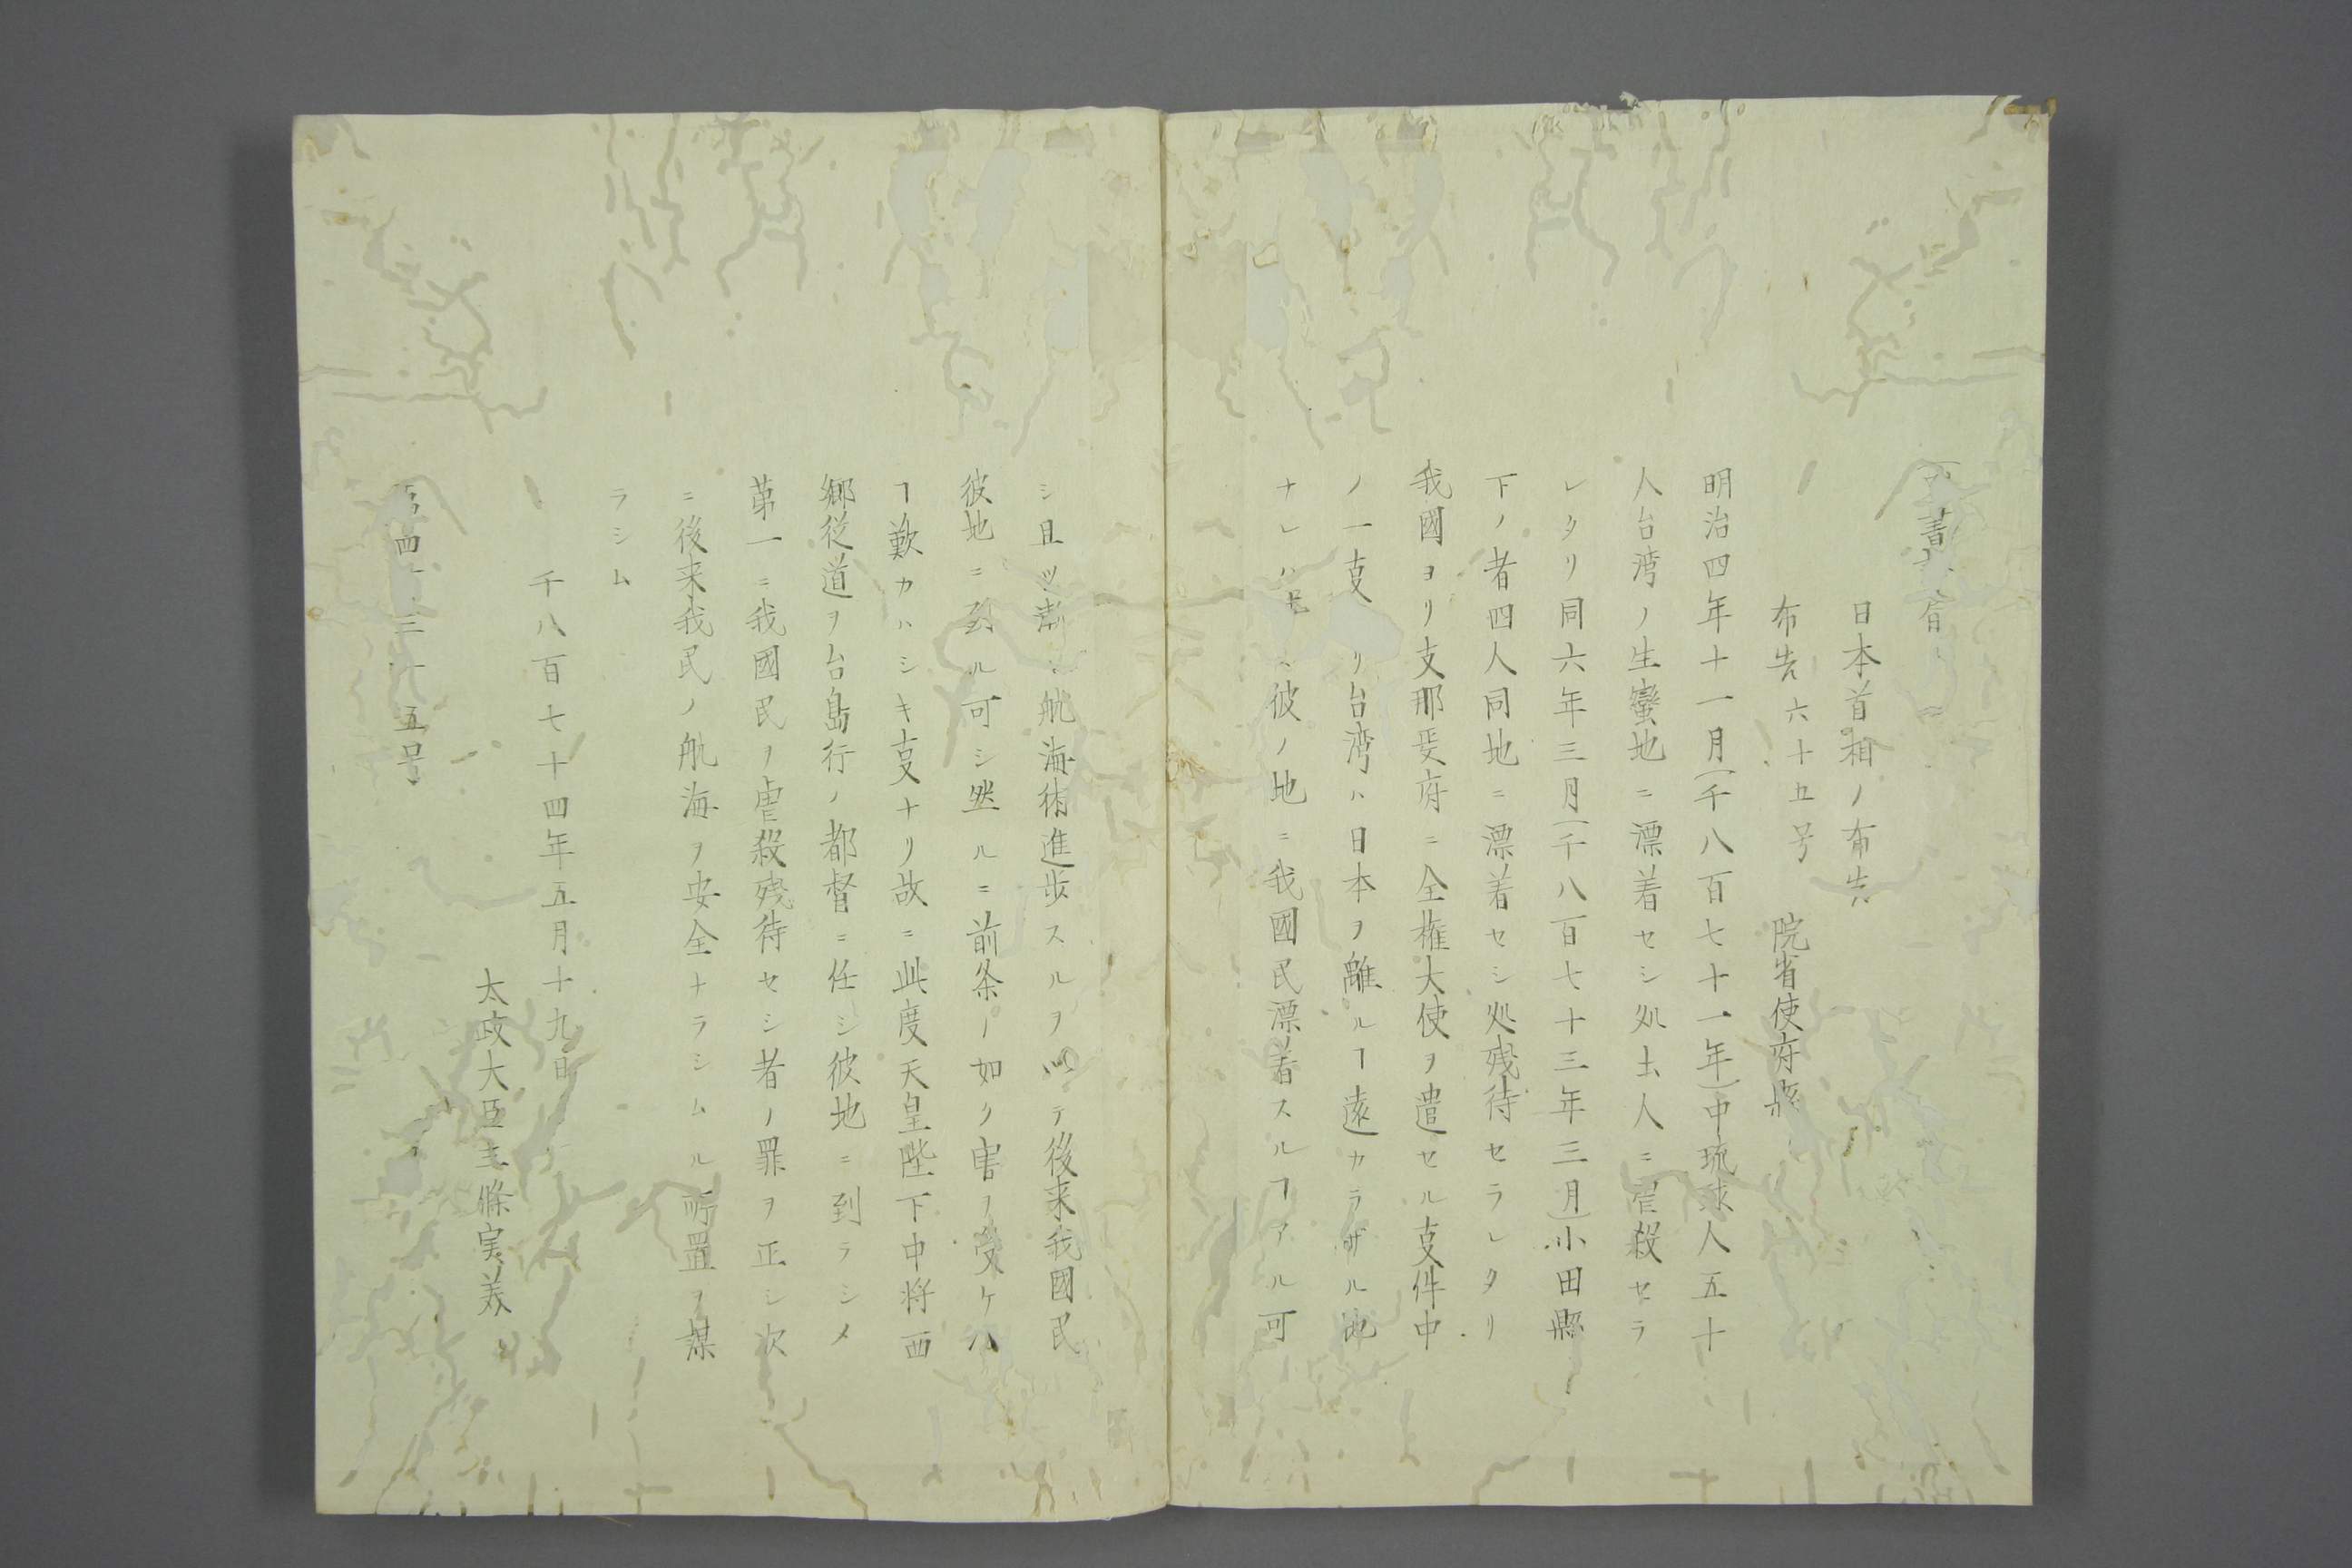 日本首相ノ布告
布告六十五号　院省使府縣
明治四年十一月(千八百七十一年)中琉球人五十
人台湾ノ生蠻地ニ漂着セシ処土人ニ虐殺セラ
レタリ同六年三月(千八百七十三年三月)小田縣
下ノ者四人同地ニ漂着セシ処残待セラレタリ
我國ヨリ支那政府ニ全権大使ヲ遣セル支件中
ノ一支 リ台湾ハ日本ヲ離ルヿ遠カラザル地
ナレハ 彼ノ地ニ我國民漂着スルヿアル可
シ且ツ漸 航海術進歩スルヲ以テ後来我國民
彼地ニ到ル可シ然ルニ前条ノ如ク害ヲ受ケハ
ヿ歎カハシキ支ナリ故ニ此度天皇陛下中将西
郷従道ヲ台島行ノ都督ニ任シ彼地ニ到ラシメ
第一ニ我國民ヲ虐殺残待セシ者ノ罪ヲ正シ次
ニ後来我民ノ航海ヲ安全ナラシムル所置ヲ謀
ラシム
千八百七十四年五月十九日
太政大臣三條実美
三十五号